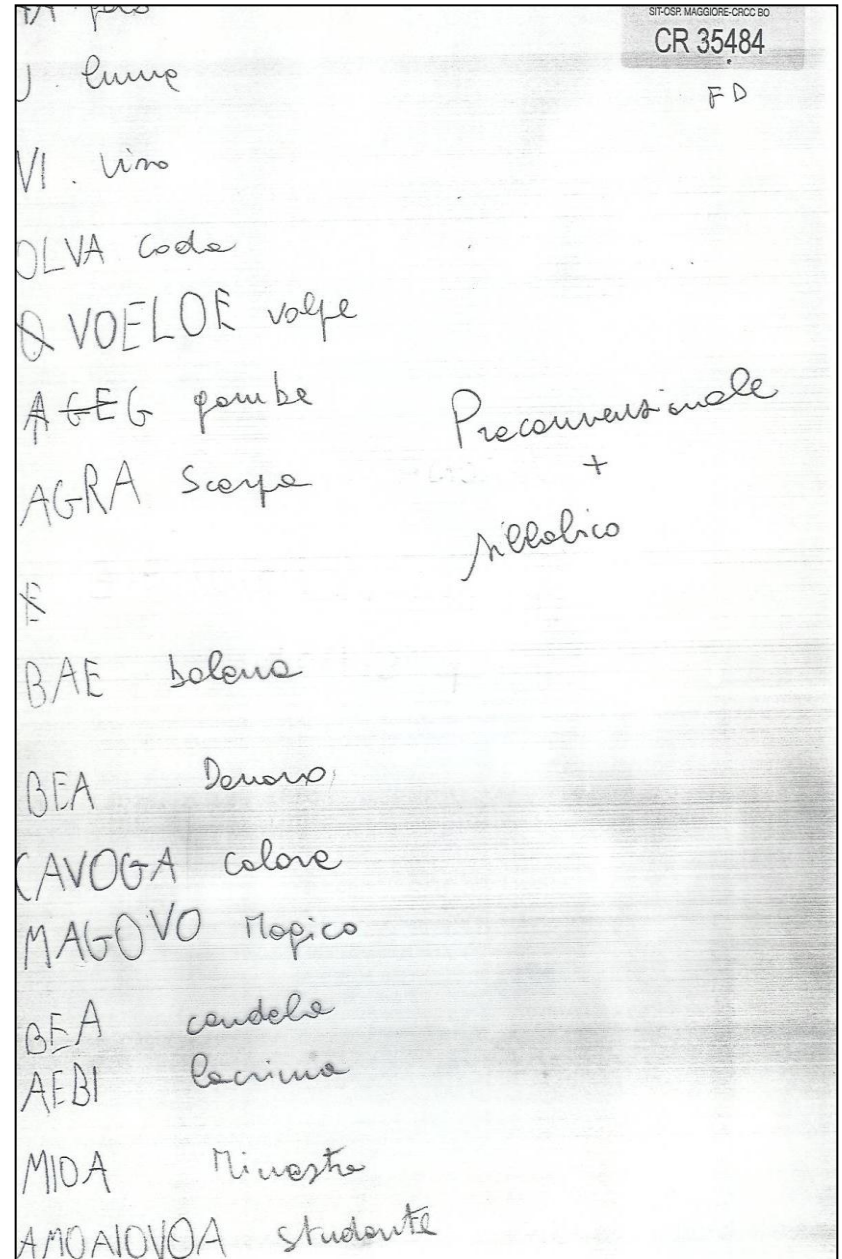 SIT-OSP. MAGGIORE-CRCC BO
CR 35484
FD
U. lume
VI. vino
OLVA coda
VOELOE volpe
AGEG gambe
AGRA Scarpa
Preconvenzionale
+
sillabico
E
BAE balena
BEA Denaro
CAVOGA calore
MAGOVO Magico
BEA candela
AEBI lacrima
MIDA Minestra
AMOAIOVOA studente